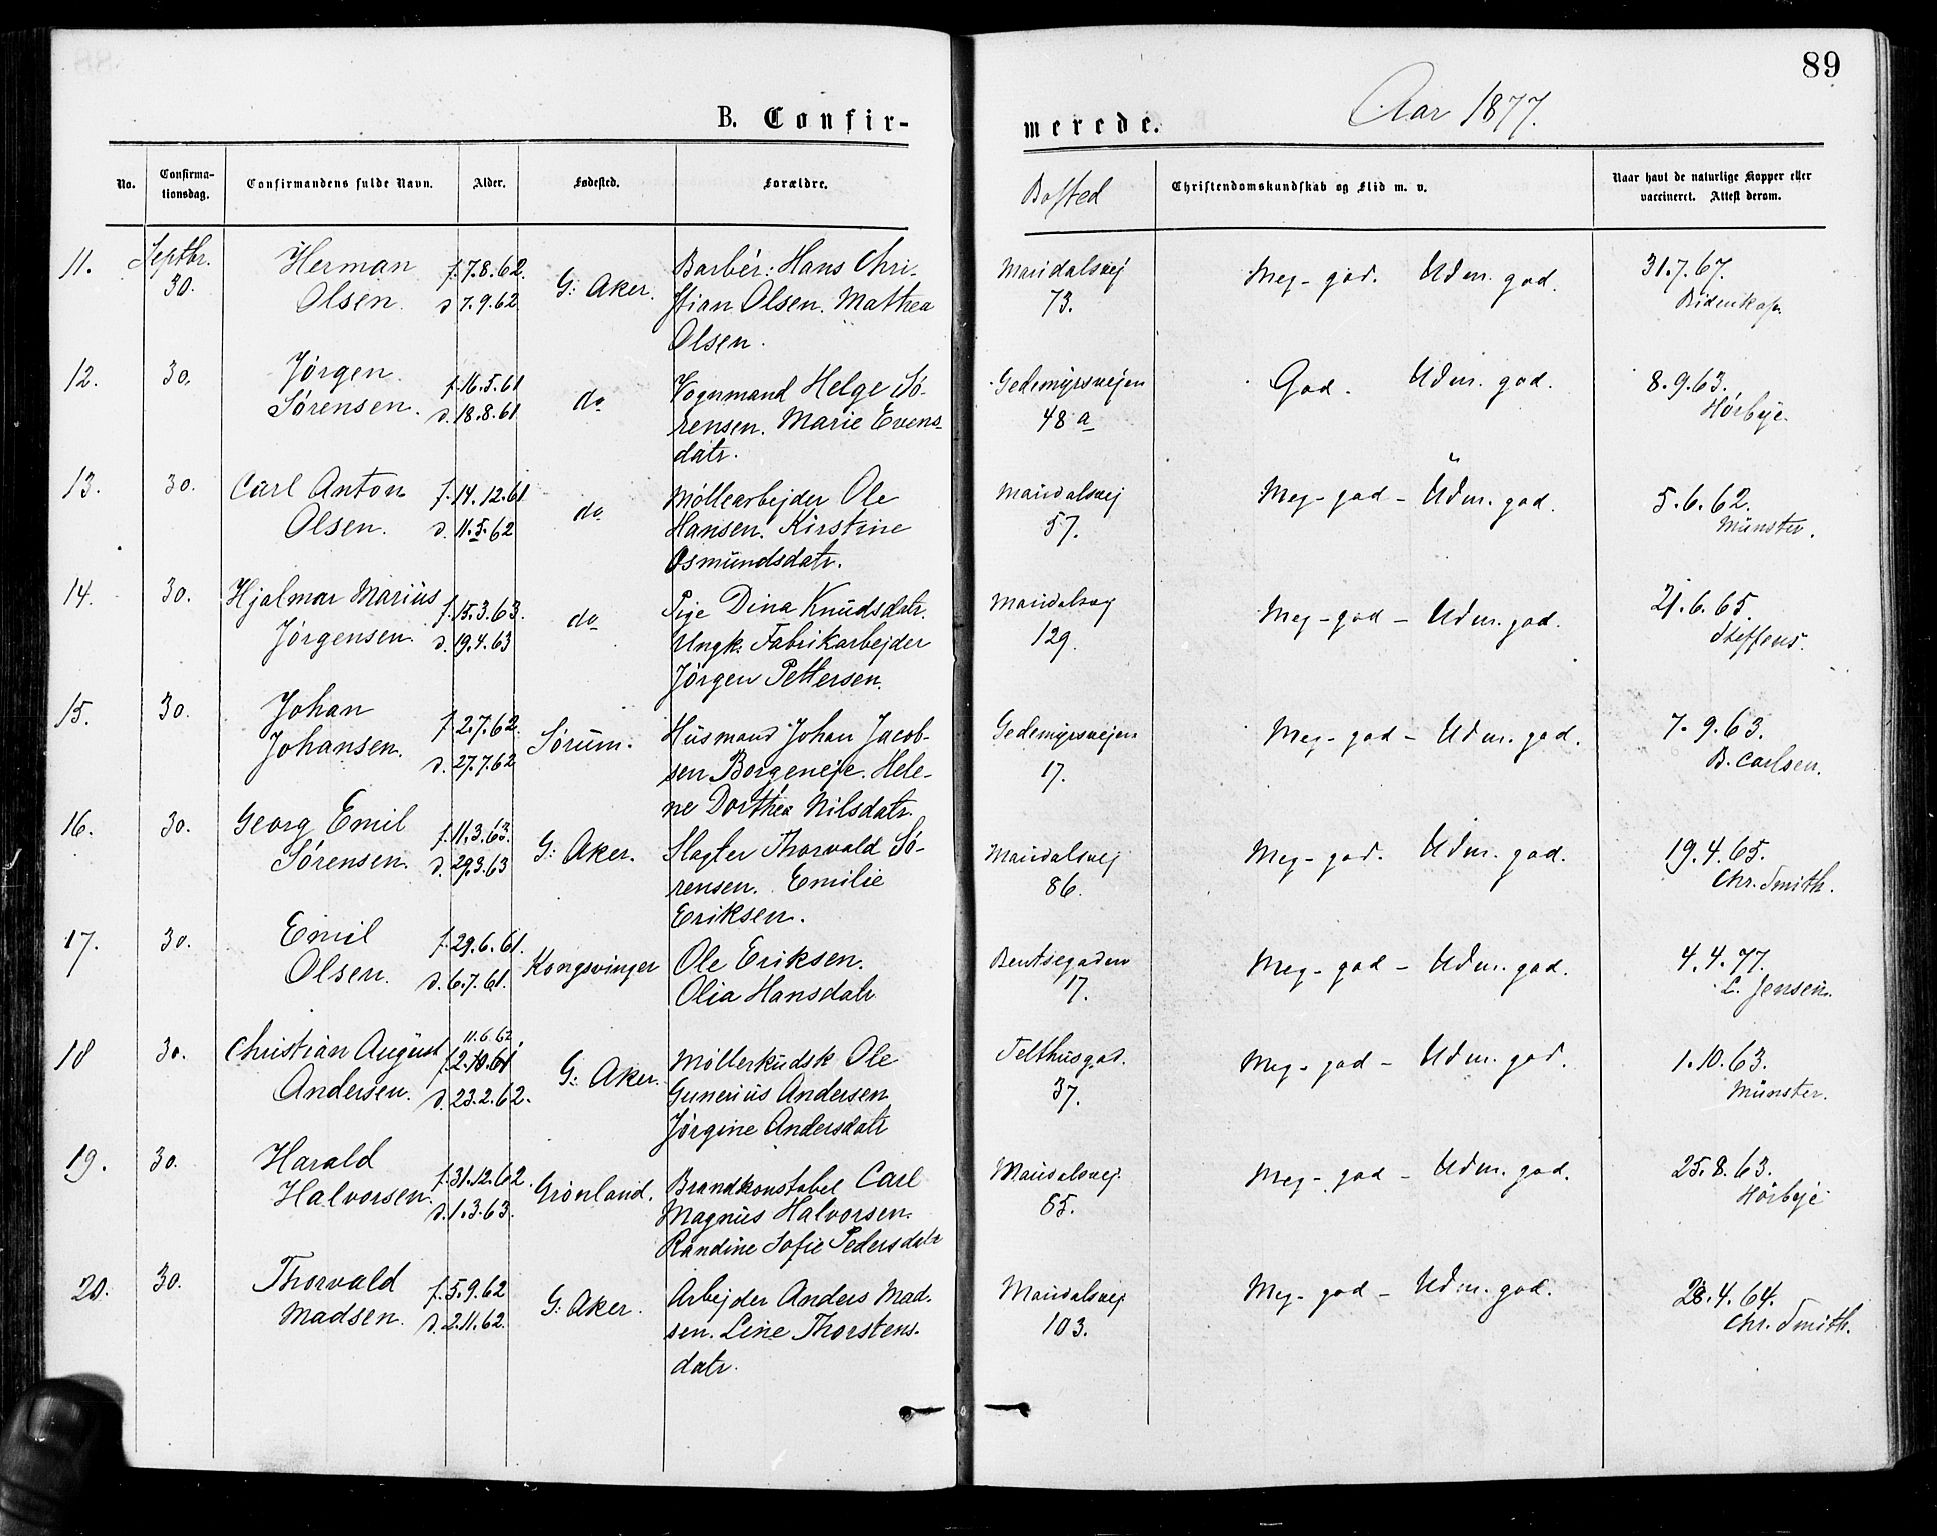 89
B. Confir-
merede.
Aar 1877.
No.
Confirma-
tionsdag.
Confirmandens fulde Navn.
Alder.
Fødested.
Forældre.
Bosted
Christendomskundskab og Flid m. v.
Naar havt de naturlige Kopper eller
vaccineret. Attest derom.
11. Septbr. Herman f. 7.8.62. G: Aker. Barbér: Hans Chri- Maridalsvej Meg. god. Udm. god. 31.7.67.
30. Olsen. d. 7.9.62 stian Olsen. Mathea 73. Bidenkap.
Olsen.
12. 30. Jørgen f. 16.5.61 do Vognmand Helge Sø- Gedemyrsvejen God. Udm. god. 8.9.63.
Sørensen. d. 18.8.61 rensen. Marie Evens- 48 a Hørbye.
datr.
13. 30. Carl Anton f. 14.12.61 do Møllearbejder Ole Maridalsvej Meg. god - Udm. god. 5.6.62.
Olsen. d. 11.5.62 Hansen. Kirstine 57. Münster.
Osmundsdatr.
14. 30. Hjalmar Marius f. 15.3.63. do Pige Dina Knudsdatr. Maridalsvej Meg. god - Udm. god. 21.6.65.
Jørgensen. d. 19.4.63 Ungk. Fabrikarbejder 129. Steffens.
Jørgen Pettersen.
15. 30. Johan f. 2.7.62. Sørum. Husmand Johan Jacob- Gedemyrsvejen Meg. god - Udm. god. 7.9.63.
Johansen. d. 27.7.62 sen Borgeneje. Hele- 17. B. Carlsen.
ne Dorthea Nilsdatr.
16. 30. Georg Emil f. 11.3.63. G: Aker. Slagter Thorvald Sø- Maridalsvej Meg. god. Udm. god. 19.4.65.
Sørensen. d. 29.3.63 rensen. Emilie 86. Chr. Smith.
Eriksen.
17. 30. Emil f. 29.6.61. Kongsvinger Ole Eriksen. Bentsegaden Meg. god - Udm. god. 4.4.77.
Olsen. d. 6.7.61. Olia Hansdatr 17. L. Jensen.
11.6.62.
18 30. Christian August f. 2.10.61 G: Aker. Møllerkudsk Ole Telthusgad. Meg. god - Udm. god. 1.10.63.
Andersen. d. 23.2.62. Gunerius Andersen 37. Münster.
Jørgine Andersdatr
19. 30. Harald f. 31.12.62. Grønland. Brandkonstabel Carl Maridalsvej. Meg. god - Udm. god. 25.8.63.
Halvorsen. d. 1.3.63. Magnus Halvorsen. 85. Hørbye
Randine Sofie Pedersdatr
20. 30. Thorvald f. 5.9.62 G: Aker. Arbejder Anders Mad- Maridalsvej Meg. god - Udm. god. 28.4.64.
Madsen. d. 2.11.62. sen. Line Thorstens- 103. Chr. Smith.
datr.